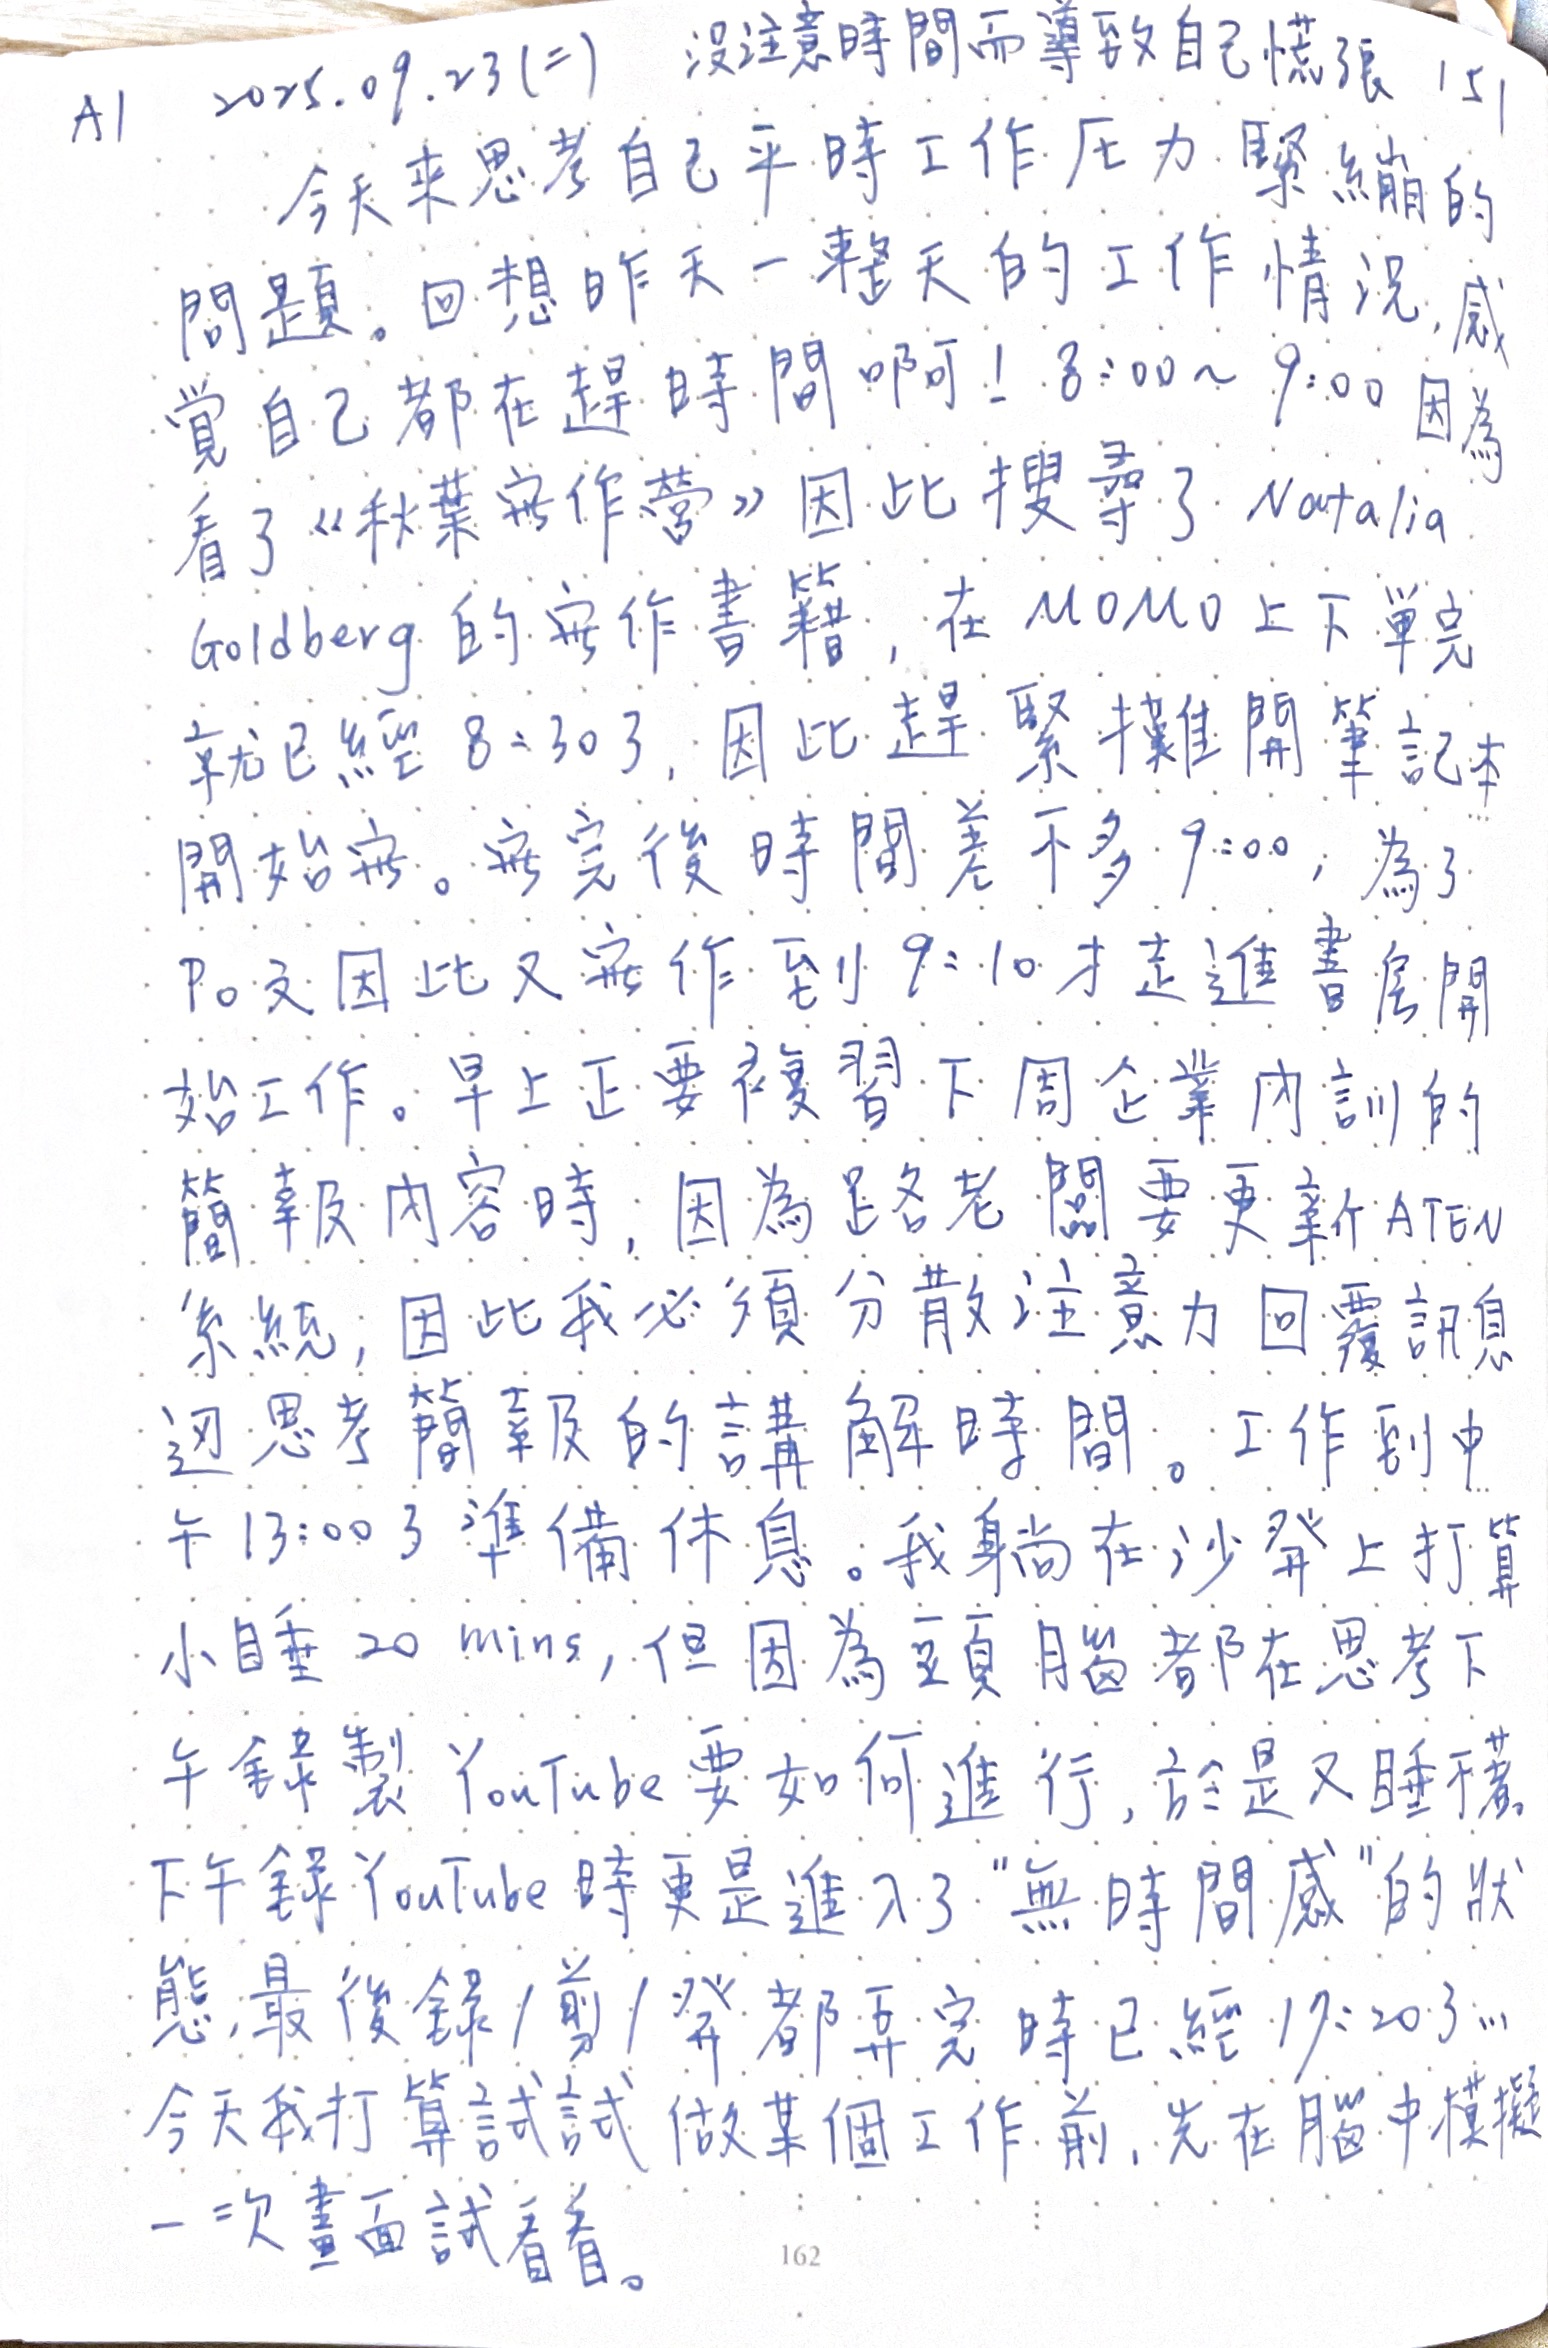 A1 2025.09.23(二) 沒注意時間而導致自己慌張 151
今天來思考自己平時工作压力緊繃的
問題。回想昨天一整天的工作情況,感
覺自己都在趕時間啊! 8:00~9:00因為
看了《秋葉寫作營》因此搜尋了Natalia
Goldberg的寫作書籍,在MOMO上下單完
就已經8:30了,因此趕緊攤開筆記本
開始寫。寫完後時間差不多9:00,為了
Po文因此又寫作到9:10才走進書房開
始工作。早上正要複習下周企業內訓的
簡報內容時,因為路老闆要更新ATEN
系統,因此我必須分散注意力回覆訊息
边思考簡報的講解時間。工作到中
午13:00了準備休息。我躺在沙發上打算
小睡20 mins,但因為頭腦都在思考下
午錄製YouTube要如何進行,於是又睡不著。
下午錄YouTube時更是進入了"無時間感"的狀
態,最後錄/剪/發都弄完時已經17:20了...
今天我打算試試做某個工作前,先在腦中模擬
一次畫面試看看。
162